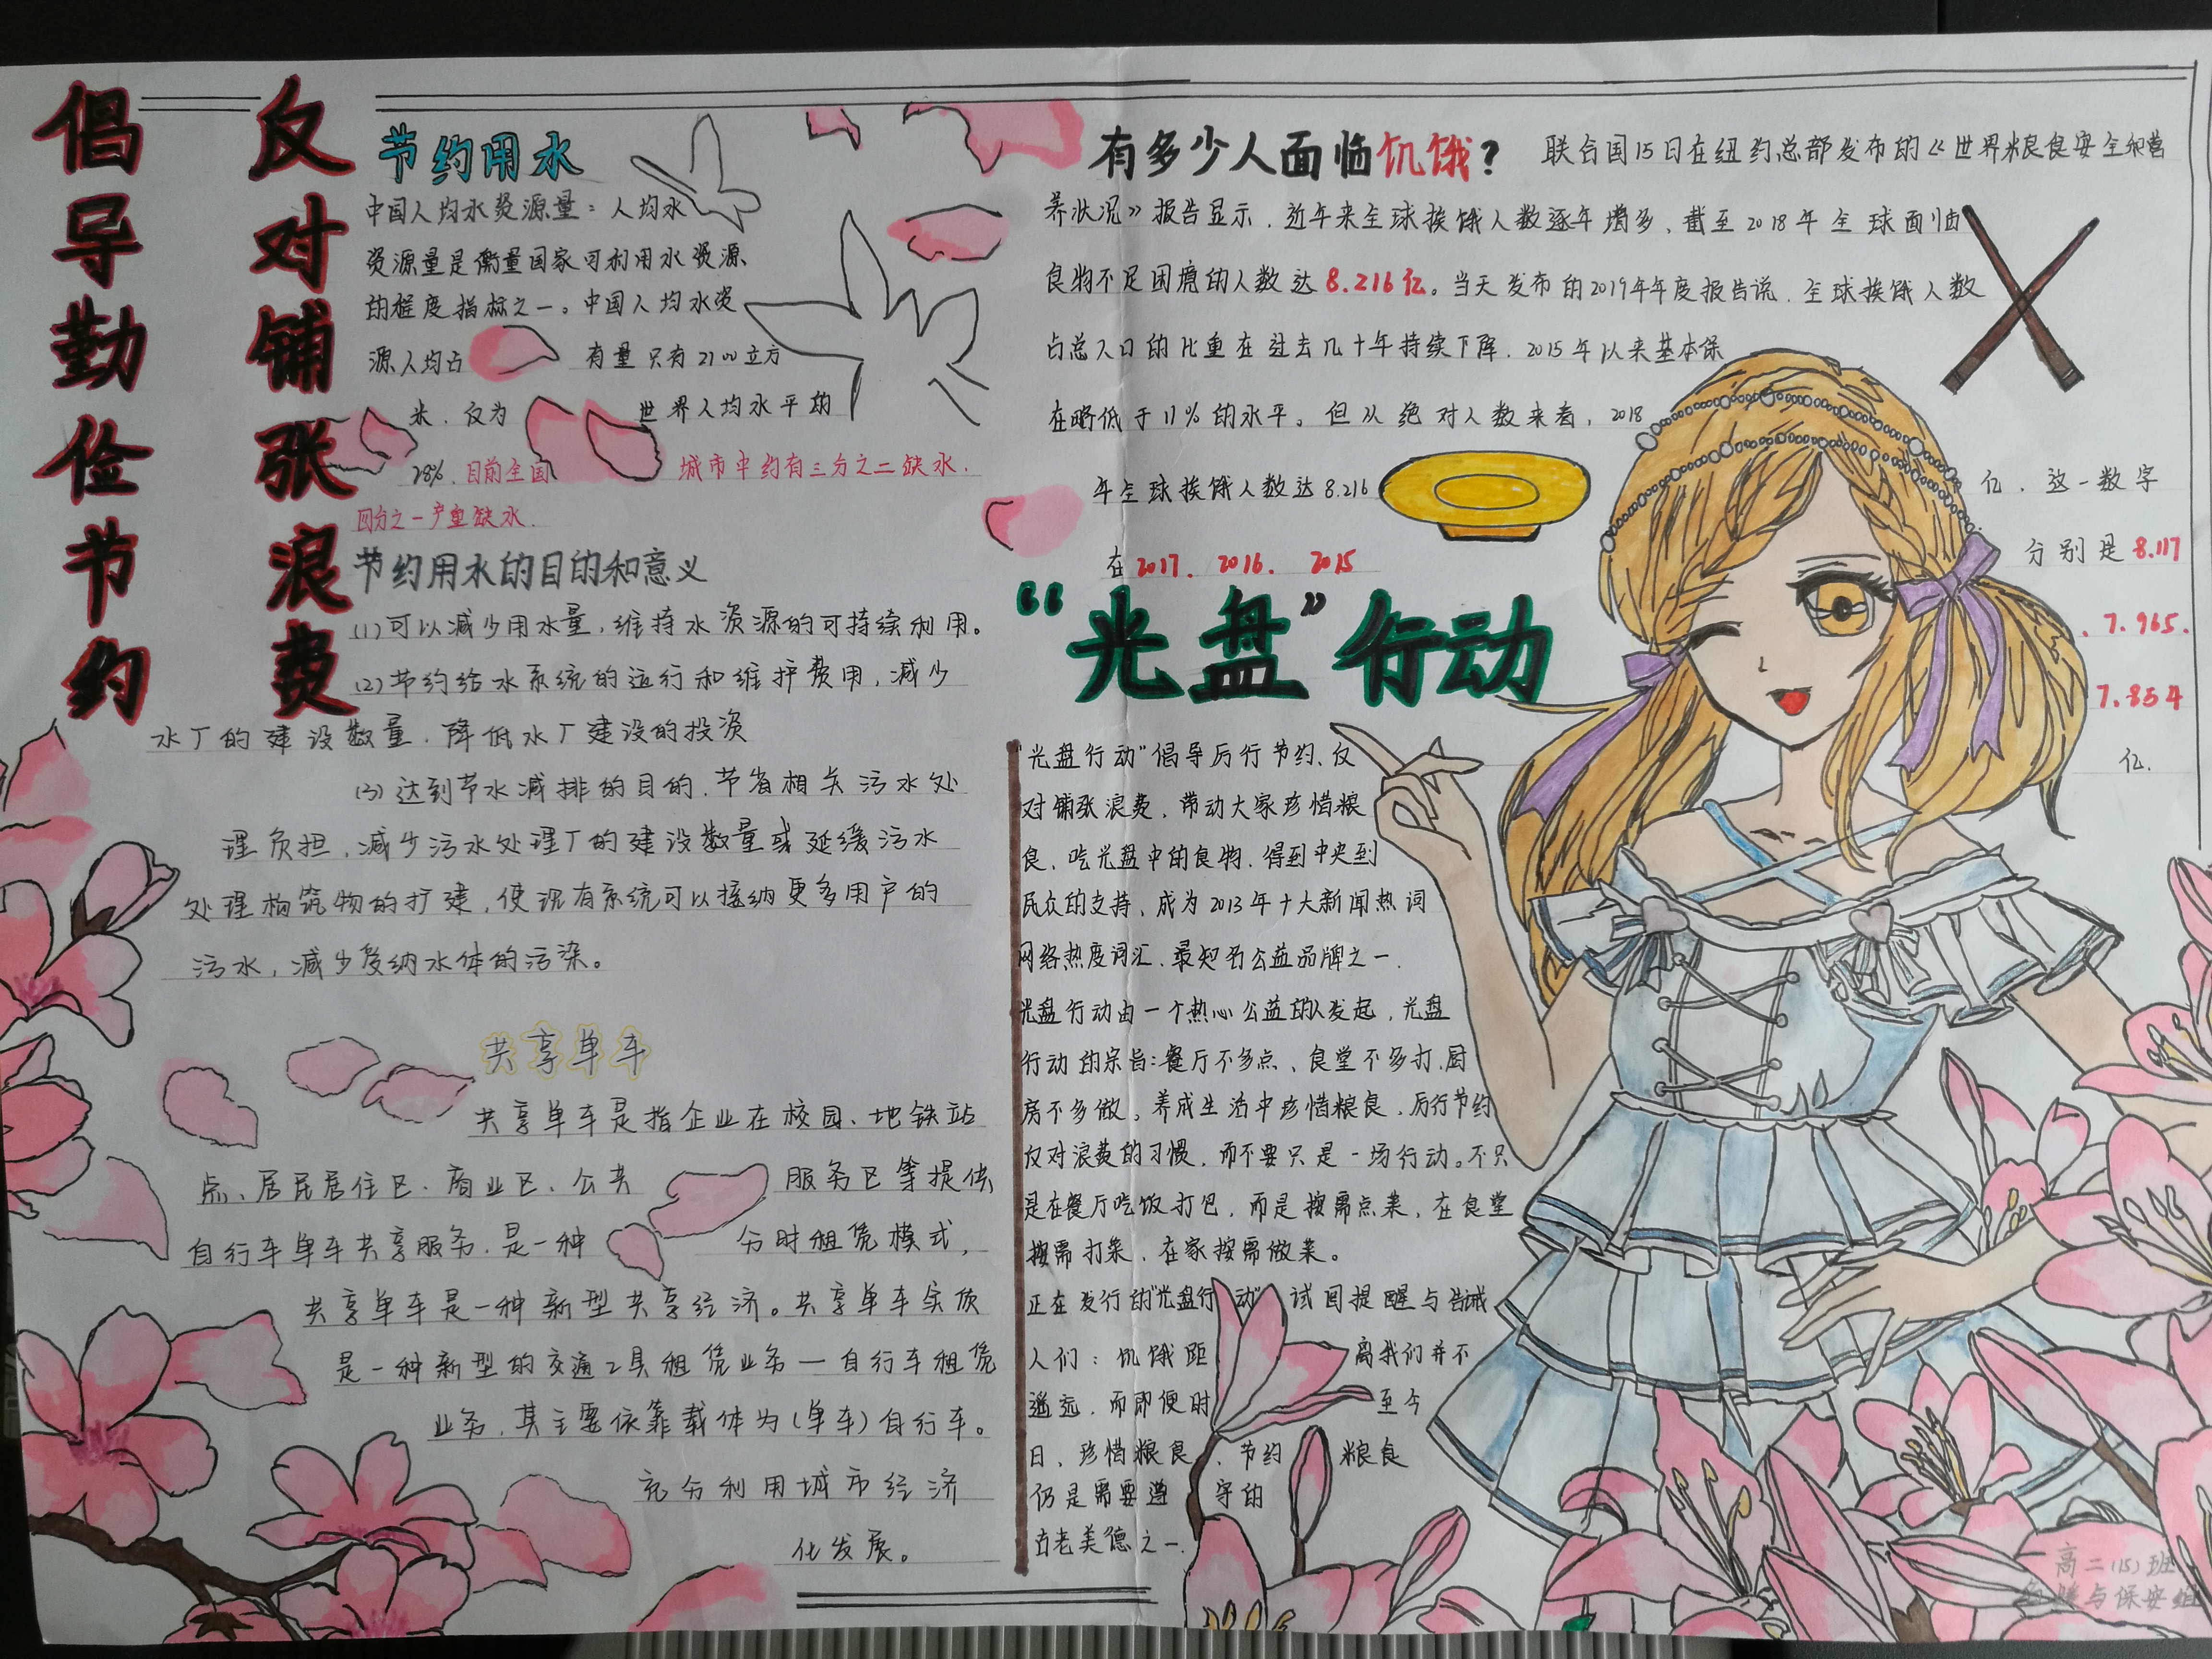 倡导勤俭节约
反对铺张浪费
节约用水
中国人均水资源量：人均水
资源量是衡量国家可利用水资源
的程度指标之一。中国人均水资
源人均占有量只有2100立方
米，仅为世界人均水平的
28%.目前全国城市中约有三分之二缺水，
四分之一严重缺水.
节约用水的目的和意义
(1)可以减少用水量，维持水资源的可持续利用。
(2)节约给水系统的运行和维护费用，减少
水厂的建设数量，降低水厂建设的投资
(3)达到节水减排的目的，节省相关污水处
理负担，减少污水处理厂的建设数量或延缓污水
处理构筑物的扩建，使现有系统可以接纳更多用户的
污水，减少受纳水体的污染。
共享单车
共享单车是指企业在校园、地铁站
点、居民居住区、商业区、公共服务区等提供
自行车单车共享服务，是一种分时租赁模式，
共享单车是一种新型共享经济。共享单车实质
是一种新型的交通工具租赁业务—自行车租赁
业务，其主要依靠载体为(单车)自行车。
充分利用城市经济
化发展。
有多少人面临饥饿？
联合国15日在纽约总部发布的《世界粮食安全和营
养状况》报告显示，近年来全球挨饿人数逐年增多，截至2018年全球面临
食物不足困境的人数达8.216亿。当天发布的2019年年度报告说，全球挨饿人数
占总人口的比重在过去几十年持续下降，2015年以来基本保
在略低于11%的水平。但从绝对人数来看，2018
年全球挨饿人数达8.216亿，这一数字
在2017. 2016. 2015分别是8.117
、7.965.
7.854
亿.
“光盘”行动
"光盘行动"倡导厉行节约、反
对铺张浪费，带动大家珍惜粮
食、吃光盘中的食物，得到中央到
民众的支持、成为2013年十大新闻热词
网络热度词汇、最知名公益品牌之一.
光盘行动由一个热心公益的人发起，光盘
行动的宗旨：餐厅不多点、食堂不多打.厨
房不多做。养成生活中珍惜粮食，厉行节约
反对浪费的习惯，而不要只是一场行动。不只
是在餐厅吃饭打包，而是按需点菜，在食堂
按需打菜，在家按需做菜。
正在发行的"光盘行动"试图提醒与告诫
人们：饥饿距离我们并不
遥远，而即便时至今
日，珍惜粮食，节约粮食
仍是需要遵守的
古老美德之一.
高二(15)班
与保安组